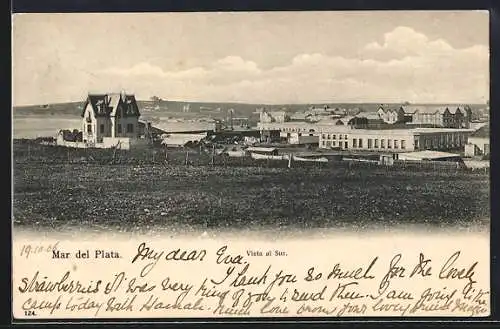 Mar del Plata.
Vista al Sur.
19.10.06
My dear Eva
I thank you so much for the lovely
Strawberries it was very kind of you to send them, I am going to the
camp today with Hannah. much love from your loving
124